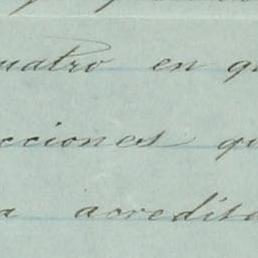 uatro en qu
cciones qu
a acredita